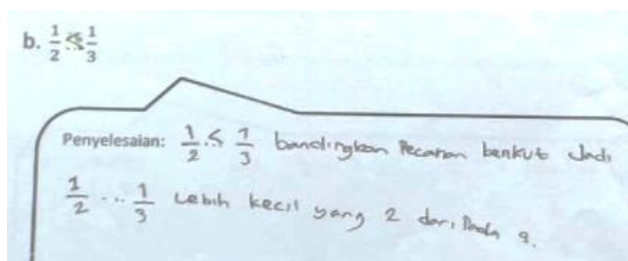 b. 1/2 < 1/3
Penyelesaian: 1/2 .< 1/3 bandingkan Pecahan berikut Jadi
1/2 ... 1/3 Lebih kecil yang 2 dari Pada